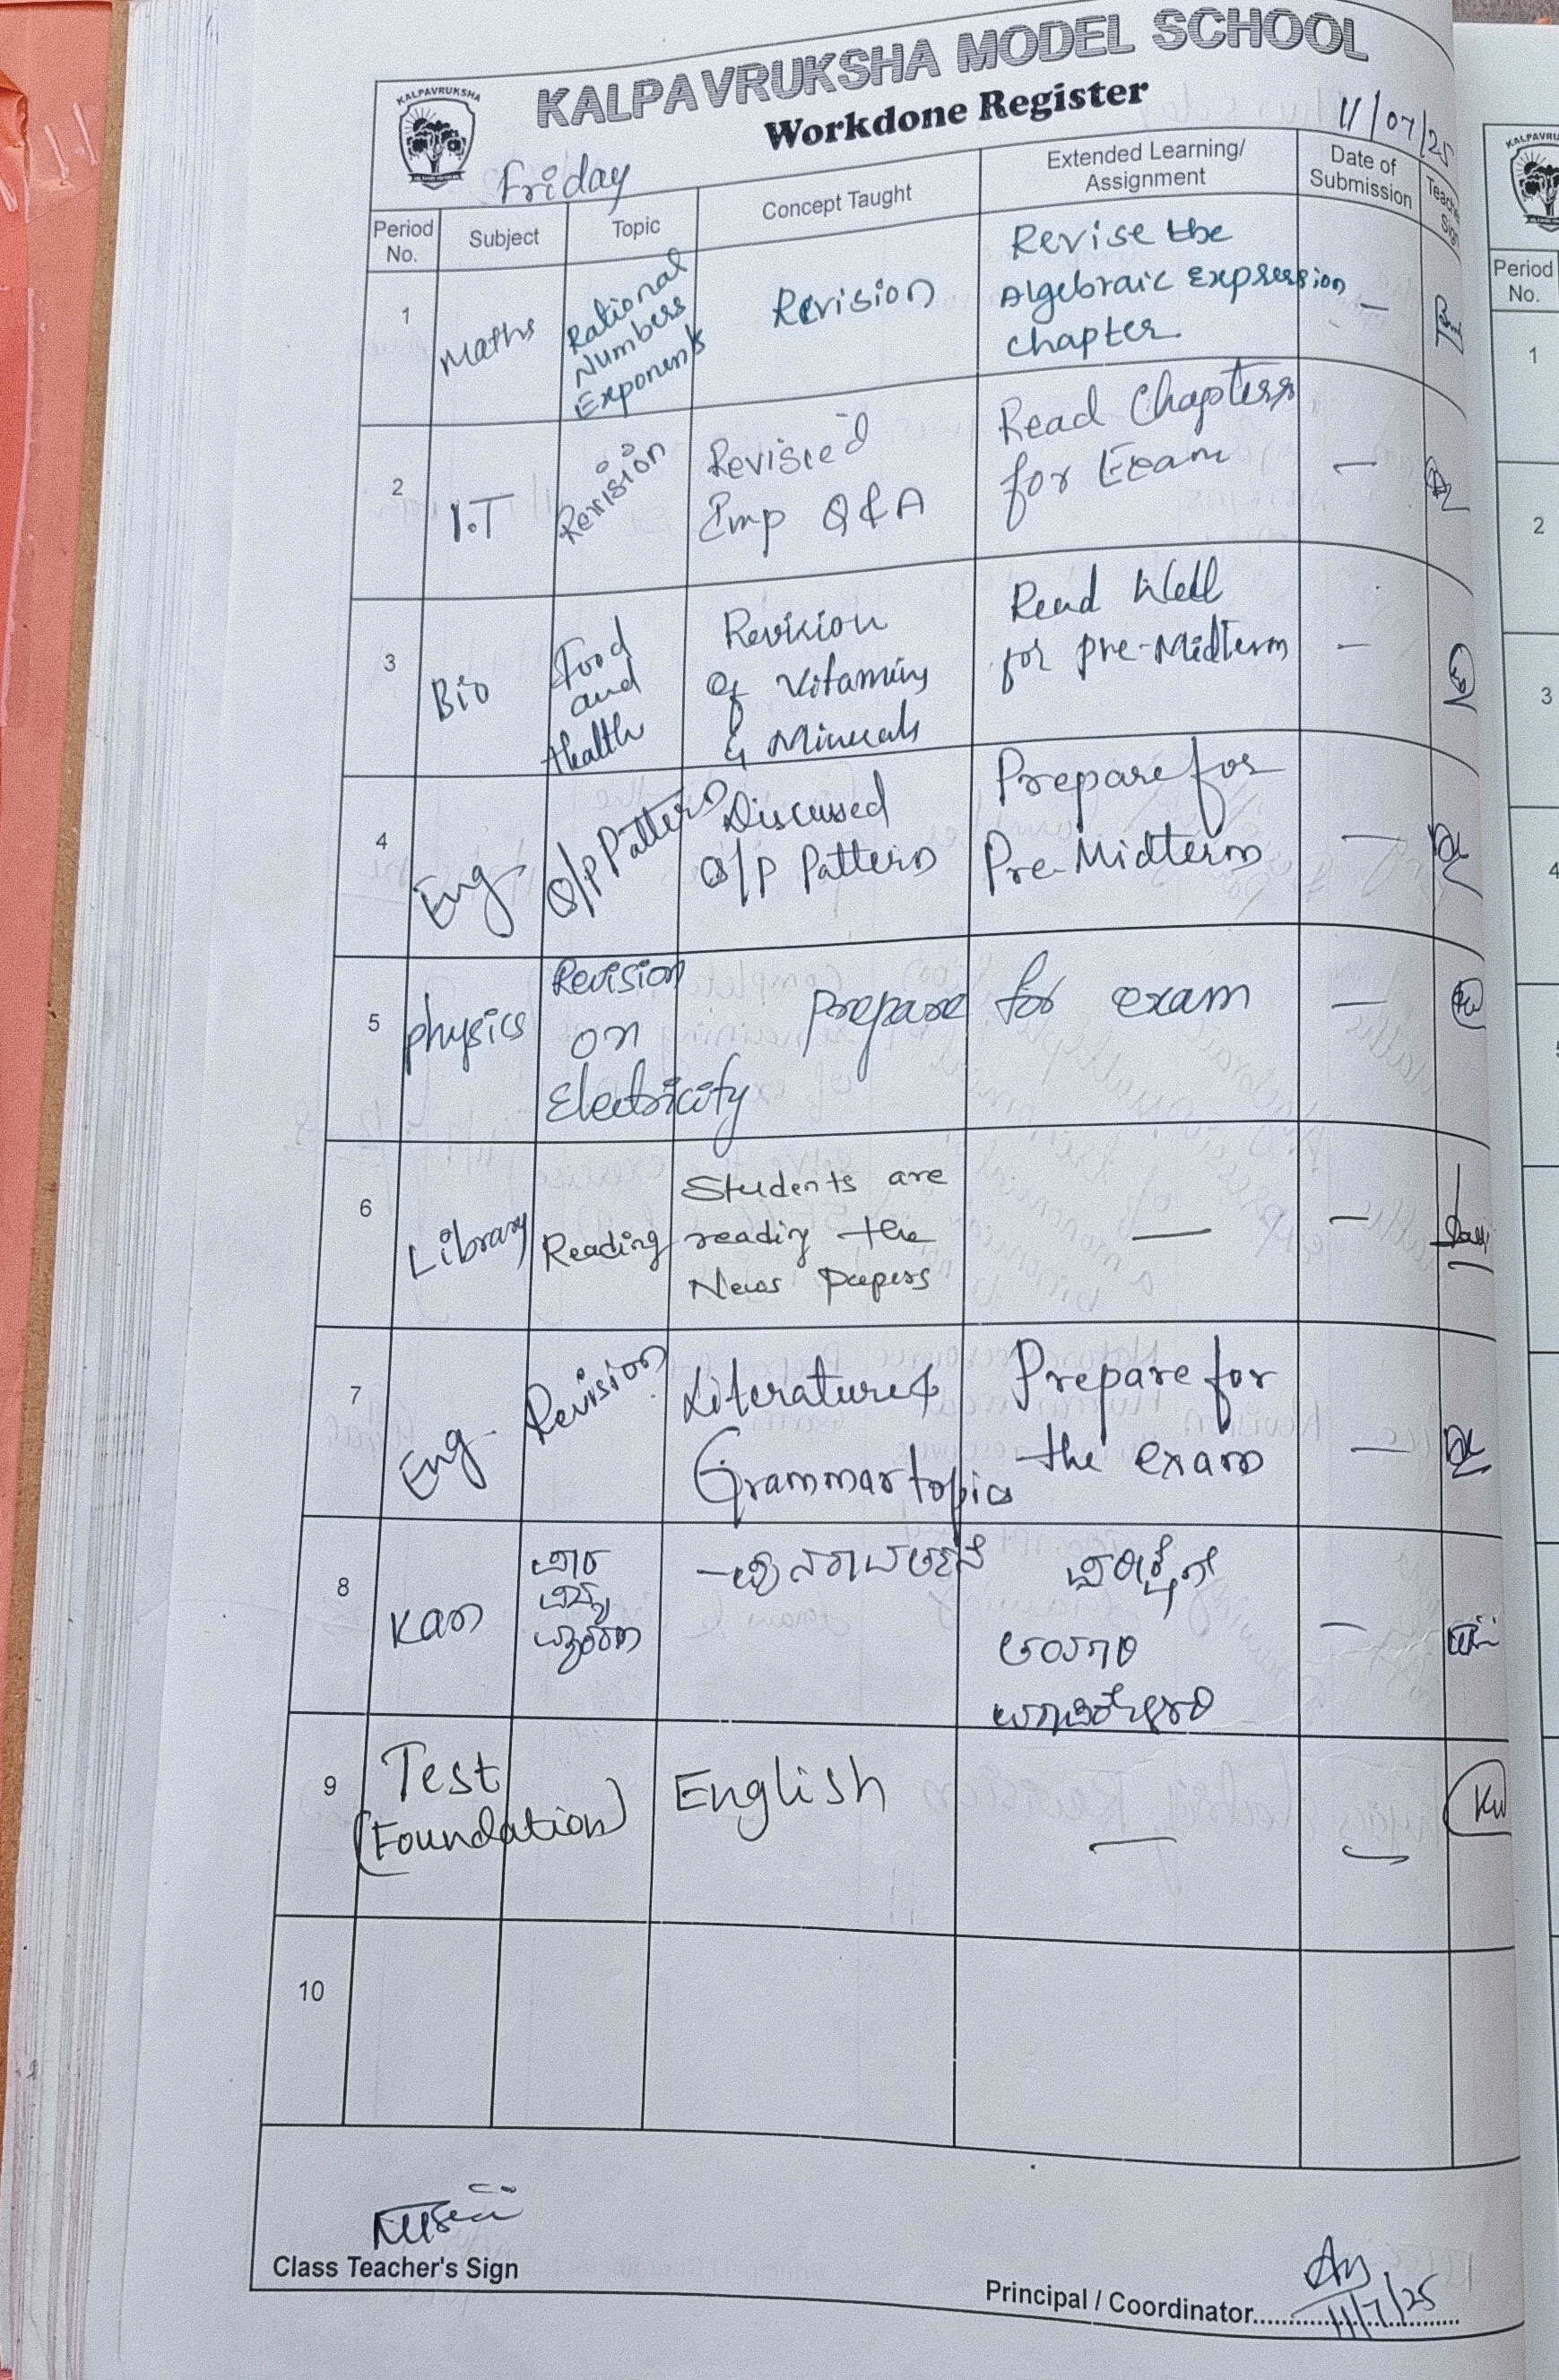 KALPAVRUKSHA MODEL SCHOOL
KALPAVRUKSHA
Workdone Register
Friday
11/07/25
Period No.
Subject
Topic
Concept Taught
Extended Learning/
Assignment
Date of
Submission
1
Maths
Rational
Numbers
Exponents
Revision
Revise the
Algebraic Expression
chapter
—
2
I.T
Revision
Revised
Imp Q & A
Read Chapters
for Exam
—
3
Bio
Food
and
Health
Revision
of Vitamins
& Minerals
Read Well
for Pre-Midterm
—
4
Eng
Q/P Pattern
Discussed
Q/P Pattern
Prepare for
Pre-Midterm
—
5
physics
Revision
on
Electricity
prepare for exam
—
6
Library
Reading
Students are
reading the
News papers
—
—
7
Eng
Revision
Literature &
Grammar topics
Prepare for
the exam
—
8
Kan
—
9
Test
(Foundation)
English
—
—
Kw
10
Class Teacher's Sign
Principal / Coordinator
11/7/25
Period
No.
1
2
3
4